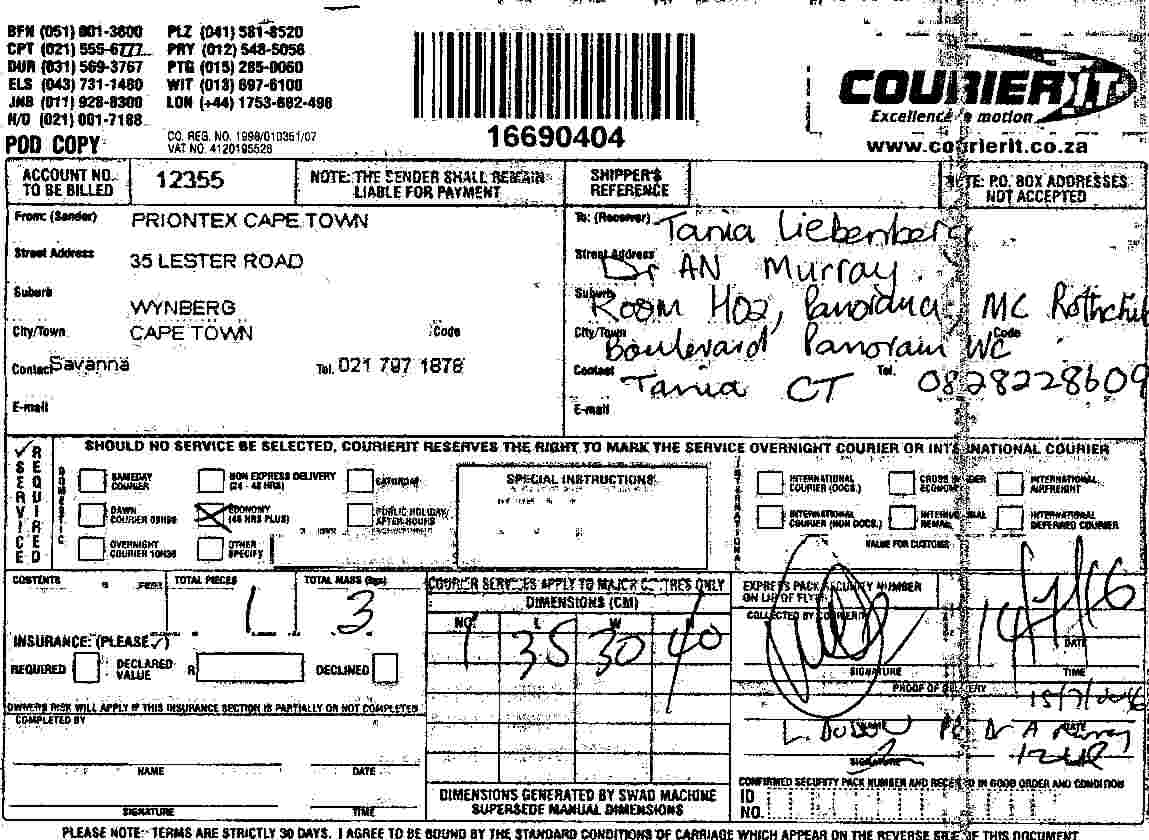 BFN (051) 001-3600 PLZ (041) 581-8520
CPT (021) 555-6777 PRY (012) 548-5056
DUR (031) 569-3767 PTG (015) 285-0060
ELS (043) 731-1480 WIT (013) 697-6100
JNB (011) 928-8300 LON (+44) 1753-682-498
H/O (021) 001-7188
POD COPY
CO. REG. NO. 1998/010351/07
VAT NO. 4120195528
16690404
COURIER I.T.
Excellence in motion
www.courierit.co.za
ACCOUNT NO. TO BE BILLED 12355
NOTE: THE SENDER SHALL REMAIN LIABLE FOR PAYMENT
SHIPPER'S REFERENCE
NOTE: P.O. BOX ADDRESSES NOT ACCEPTED
From: (Sender) PRIONTEX CAPE TOWN
Street Address 35 LESTER ROAD
Suburb WYNBERG
City/Town CAPE TOWN Code
Contact Savanna Tel. 021 797 1878
E-mail
To: (Receiver) Tania Liebenberg
Street Address Dr AN Murray
Suburb Room H02, Panorama, MC Rothchil
City/Town Boulevard Panoram WC Code
Contact Tania CT Tel. 0828228609
E-mail
SERVICE REQUIRED
SHOULD NO SERVICE BE SELECTED, COURIERIT RESERVES THE RIGHT TO MARK THE SERVICE OVERNIGHT COURIER OR INTERNATIONAL COURIER
DOMESTIC
SAMEDAY COURIER
NON EXPRESS DELIVERY (24 - 48 HRS)
SATURDAY
DAWN COURIER 09H00
ECONOMY (48 HRS PLUS)
PUBLIC HOLIDAY/ AFTER-HOURS
OVERNIGHT COURIER 10H30
OTHER SPECIFY
SPECIAL INSTRUCTIONS
INTERNATIONAL
INTERNATIONAL COURIER (DOCS.)
CROSS BORDER ECONOMY
INTERNATIONAL AIRFREIGHT
INTERNATIONAL COURIER (NON DOCS.)
INTERNATIONAL REMAIL
INTERNATIONAL DEFERRED COURIER
VALUE FOR CUSTOMS
CONTENTS
TOTAL PIECES 1
TOTAL MASS (kgs) 3
INSURANCE: (PLEASE ✓)
REQUIRED DECLARED VALUE R DECLINED
OWNERS RISK WILL APPLY IF THIS INSURANCE SECTION IS PARTIALLY OR NOT COMPLETED
COMPLETED BY
NAME DATE
SIGNATURE TIME
COURIER SERVICES APPLY TO MAJOR CENTRES ONLY
DIMENSIONS (CM)
NO. L W H
1 35 30 40
DIMENSIONS GENERATED BY SWAD MACHINE SUPERSEDE MANUAL DIMENSIONS
EXPRESS PACK SECURITY NUMBER ON LIP OF FLYER
COLLECTED BY COURIERIT
14/7/16
DATE
SIGNATURE TIME
PROOF OF DELIVERY
15/7/2016
L. Dr A Murray
NAME DATE
SIGNATURE
CONFIRMED SECURITY PACK NUMBER AND RECEIVED IN GOOD ORDER AND CONDITION
ID NO.
PLEASE NOTE: TERMS ARE STRICTLY 30 DAYS. I AGREE TO BE BOUND BY THE STANDARD CONDITIONS OF CARRIAGE WHICH APPEAR ON THE REVERSE SIDE OF THIS DOCUMENT